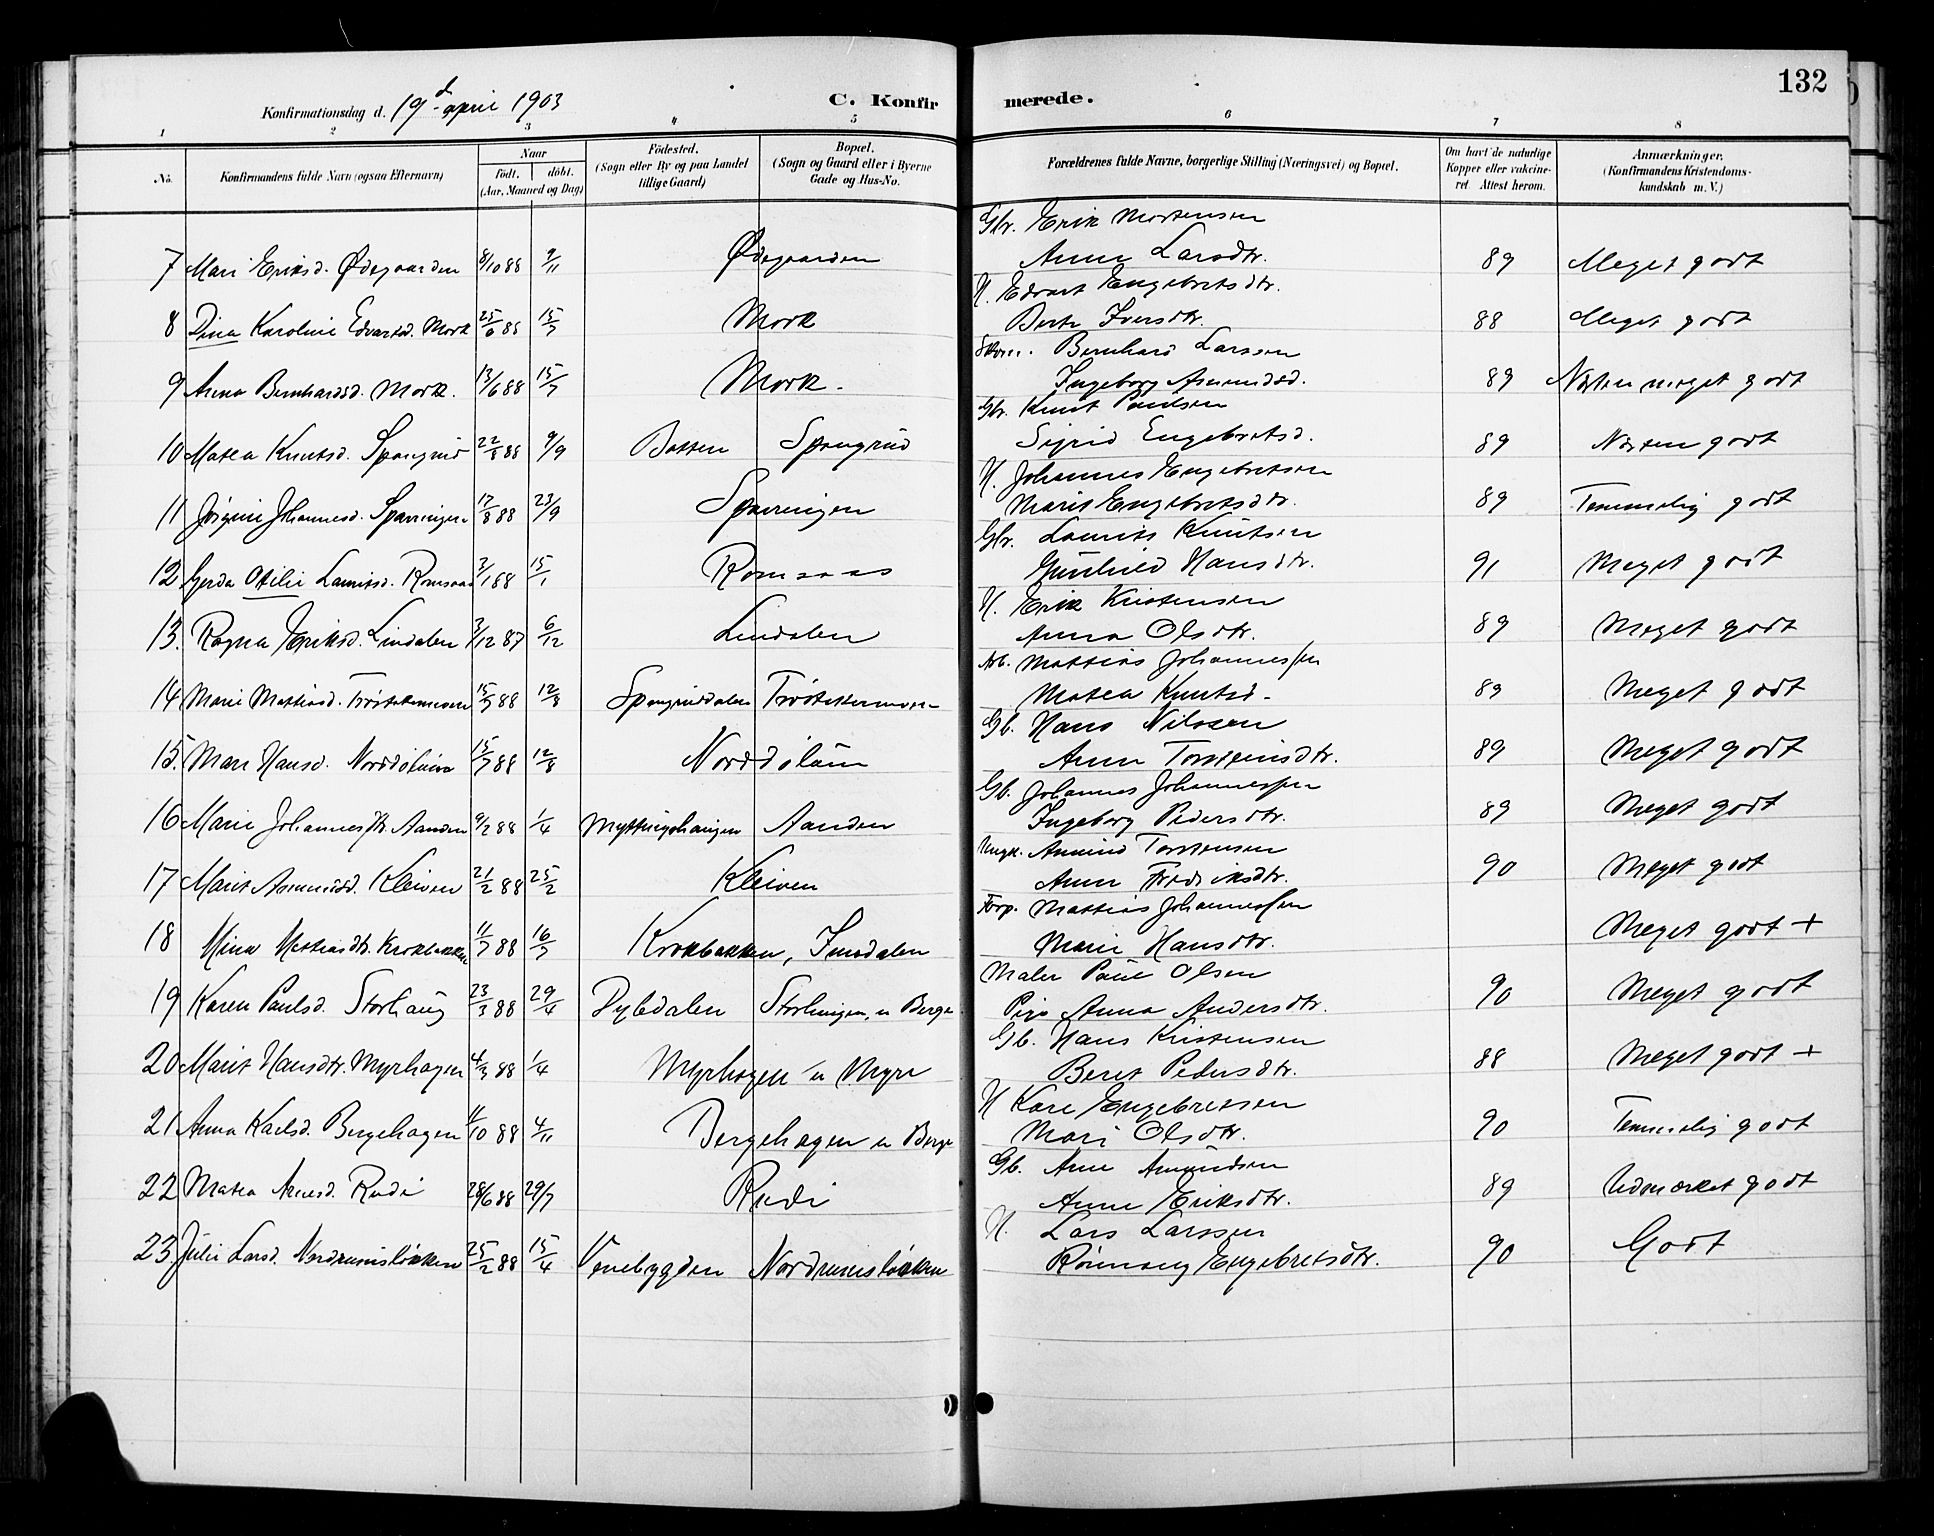 132
Konfirmationsdag d. 19d april 1903
C. Konfirmerede.
1 2 3 4 5 6 7 8
No.
Konfirmandens fulde Navn (ogsaa Efternavn)
Naar
födt. döbt.
(Aar, Maaned og Dag)
Födested.
(Sogn eller By og paa Landet
tillige Gaard)
Bopæl.
(Sogn og Gaard eller i Byerne
Gade og Hus-No.
Forældrenes fulde Navne, borgerlige Stilling (Næringsvei) og Bopæl.
Om havt de naturlige
Kopper eller vakcine-
ret. Attest herom.
Anmærkninger.
(Konfirmandens Kristendoms-
kundskab m. V.)
Gbr. Erik Mortensen
7 Mari Eriksd. Ødegaarden 8/10 88 9/11 Ødegaarden Anne Larsdtr. 89 Meget godt
H. Edvart Engebretsdtr.
8 Dina Karoline Edvartsd. Mork 25/6 88 15/7 Mork Berte Iversdtr. 88 Meget godt
Bernhard Larssen
9 Anna Bernhardsd. Mork. 13/6 88 15/7 Mork. Ingeborg Amundsd. 89 Næsten meget godt
Gbr. Knut Paulsen
10 Matea Knutsd. Spangrud 22/8 88 9/9 Botten Spangrud Sigrid Engebretsd. 89 Næsten godt
H. Johannes Engebretsen
11 Jørgine Johannesd. Spavringen 17/8 88 23/9 Spavringen Marit Engebretsdtr. 89 Temmelig godt
Gbr. Laurits Knutsen
12 Gerda Otilie Lauritsd. Romsaas 3/1 88 15/1 Romsaas Gunhild Hansdtr. 91 Meget godt
H. Erik Kristensen
13. Ragna Eriksd. Lindalen 3/12 87 6/12 Lindalen Anna Olsdtr. 89 Meget godt
Arb. Mattias Johannessen
14 Marie Mattiasd. 15/7 88 12/8 Spangruddalen Matea Knutsd. 89 Meget godt
Gb. Hans Nilssen
15. Mari Hansd. Norddølum 15/7 88 12/8 Norddølum Anne Torsteinsdtr. 89 Meget godt
Gb. Johannes Johannessen
16 Marie Johannesdtr. Aanden 9/2 88 1/4 Myttingshaugen Aanden Ingeborg Pedersdtr. 89 Meget godt
Ungk. Amund Torstensen
17 Marit Amundsd. Kleiven 21/2 88 25/2 Kleiven Anne Fredriksdtr. 90 Meget godt
Forp. Mattias Johannessen
18 Mina Matiasdtr. Krokbakken 11/7 88 16/7 Krokbakken, Imsdalen Marie Hansdtr. Meget godt +
Maler Paul Olsen
19 Karen Paulsd. Storhaug 23/3 88 29/4 Dybdalen Storhaugen, u Berge Pige Anna Andersdtr. 90 Meget godt
Gb. Hans Kristensen
20 Marit Hansdtr. Myrhagen 4/3 88 1/4 Myrhagen u Myre Beret Pedersdtr. 88 Meget godt +
H Karl Engebretsen
21 Anna Karlsd. Bergehagen 11/10 88 4/11 Bergehagen u Berge Mari Olsdtr. 90 Temmelig godt
Gb. Arne Amundsen
22 Matea Arnesd. Rudi 28/6 88 29/7 Rudi Anne Eriksdtr. 89 Udmærket godt
H. Lars Larssen
23 Julie Larsd. Nordrumsløkken 25/2 88 15/4 Venebygden Nordrumsløkken Rønnaug Engebretsdtr. 90 Godt